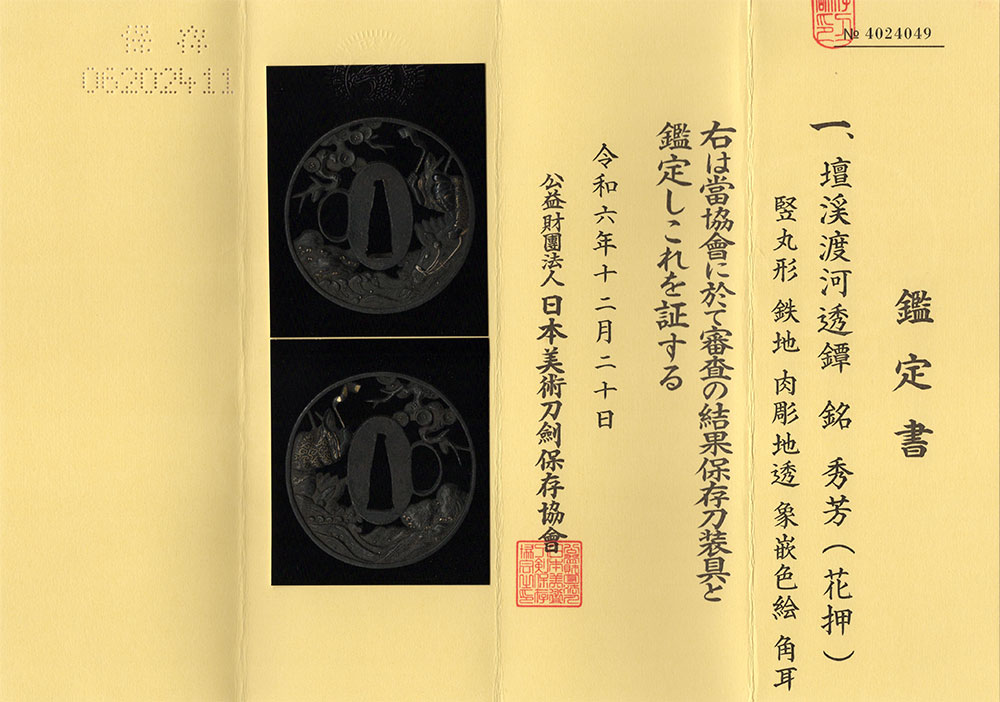 № 4024049
鑑定書
一、壇渓渡河透鐔 銘 秀芳(花押)
竪丸形 鉄地 肉彫地透 象嵌色絵 角耳
右は當協會に於て審査の結果保存刀装具と
鑑定しこれを証する
令和六年十二月二十日
公益財團法人 日本美術刀劍保存協會
保存
06202411